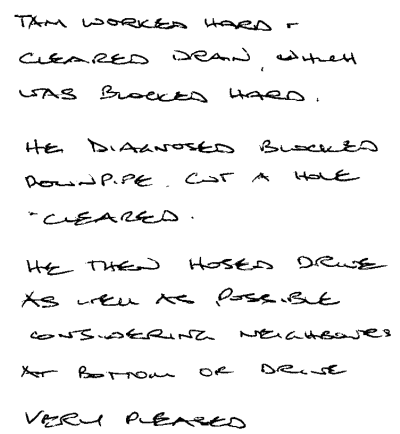 TAM WORKED HARD -
CLEARED DRAIN, WHICH
WAS BLOCKED HARD.
HE DIAGNOSED BLOCKED
DOWNPIPE. CUT A HOLE
- CLEARED.
HE THEN HOSED DRIVE
AS WELL AS POSSIBLE
CONSIDERING NEIGHBOURS
AT BOTTOM OF DRIVE
VERY PLEASED